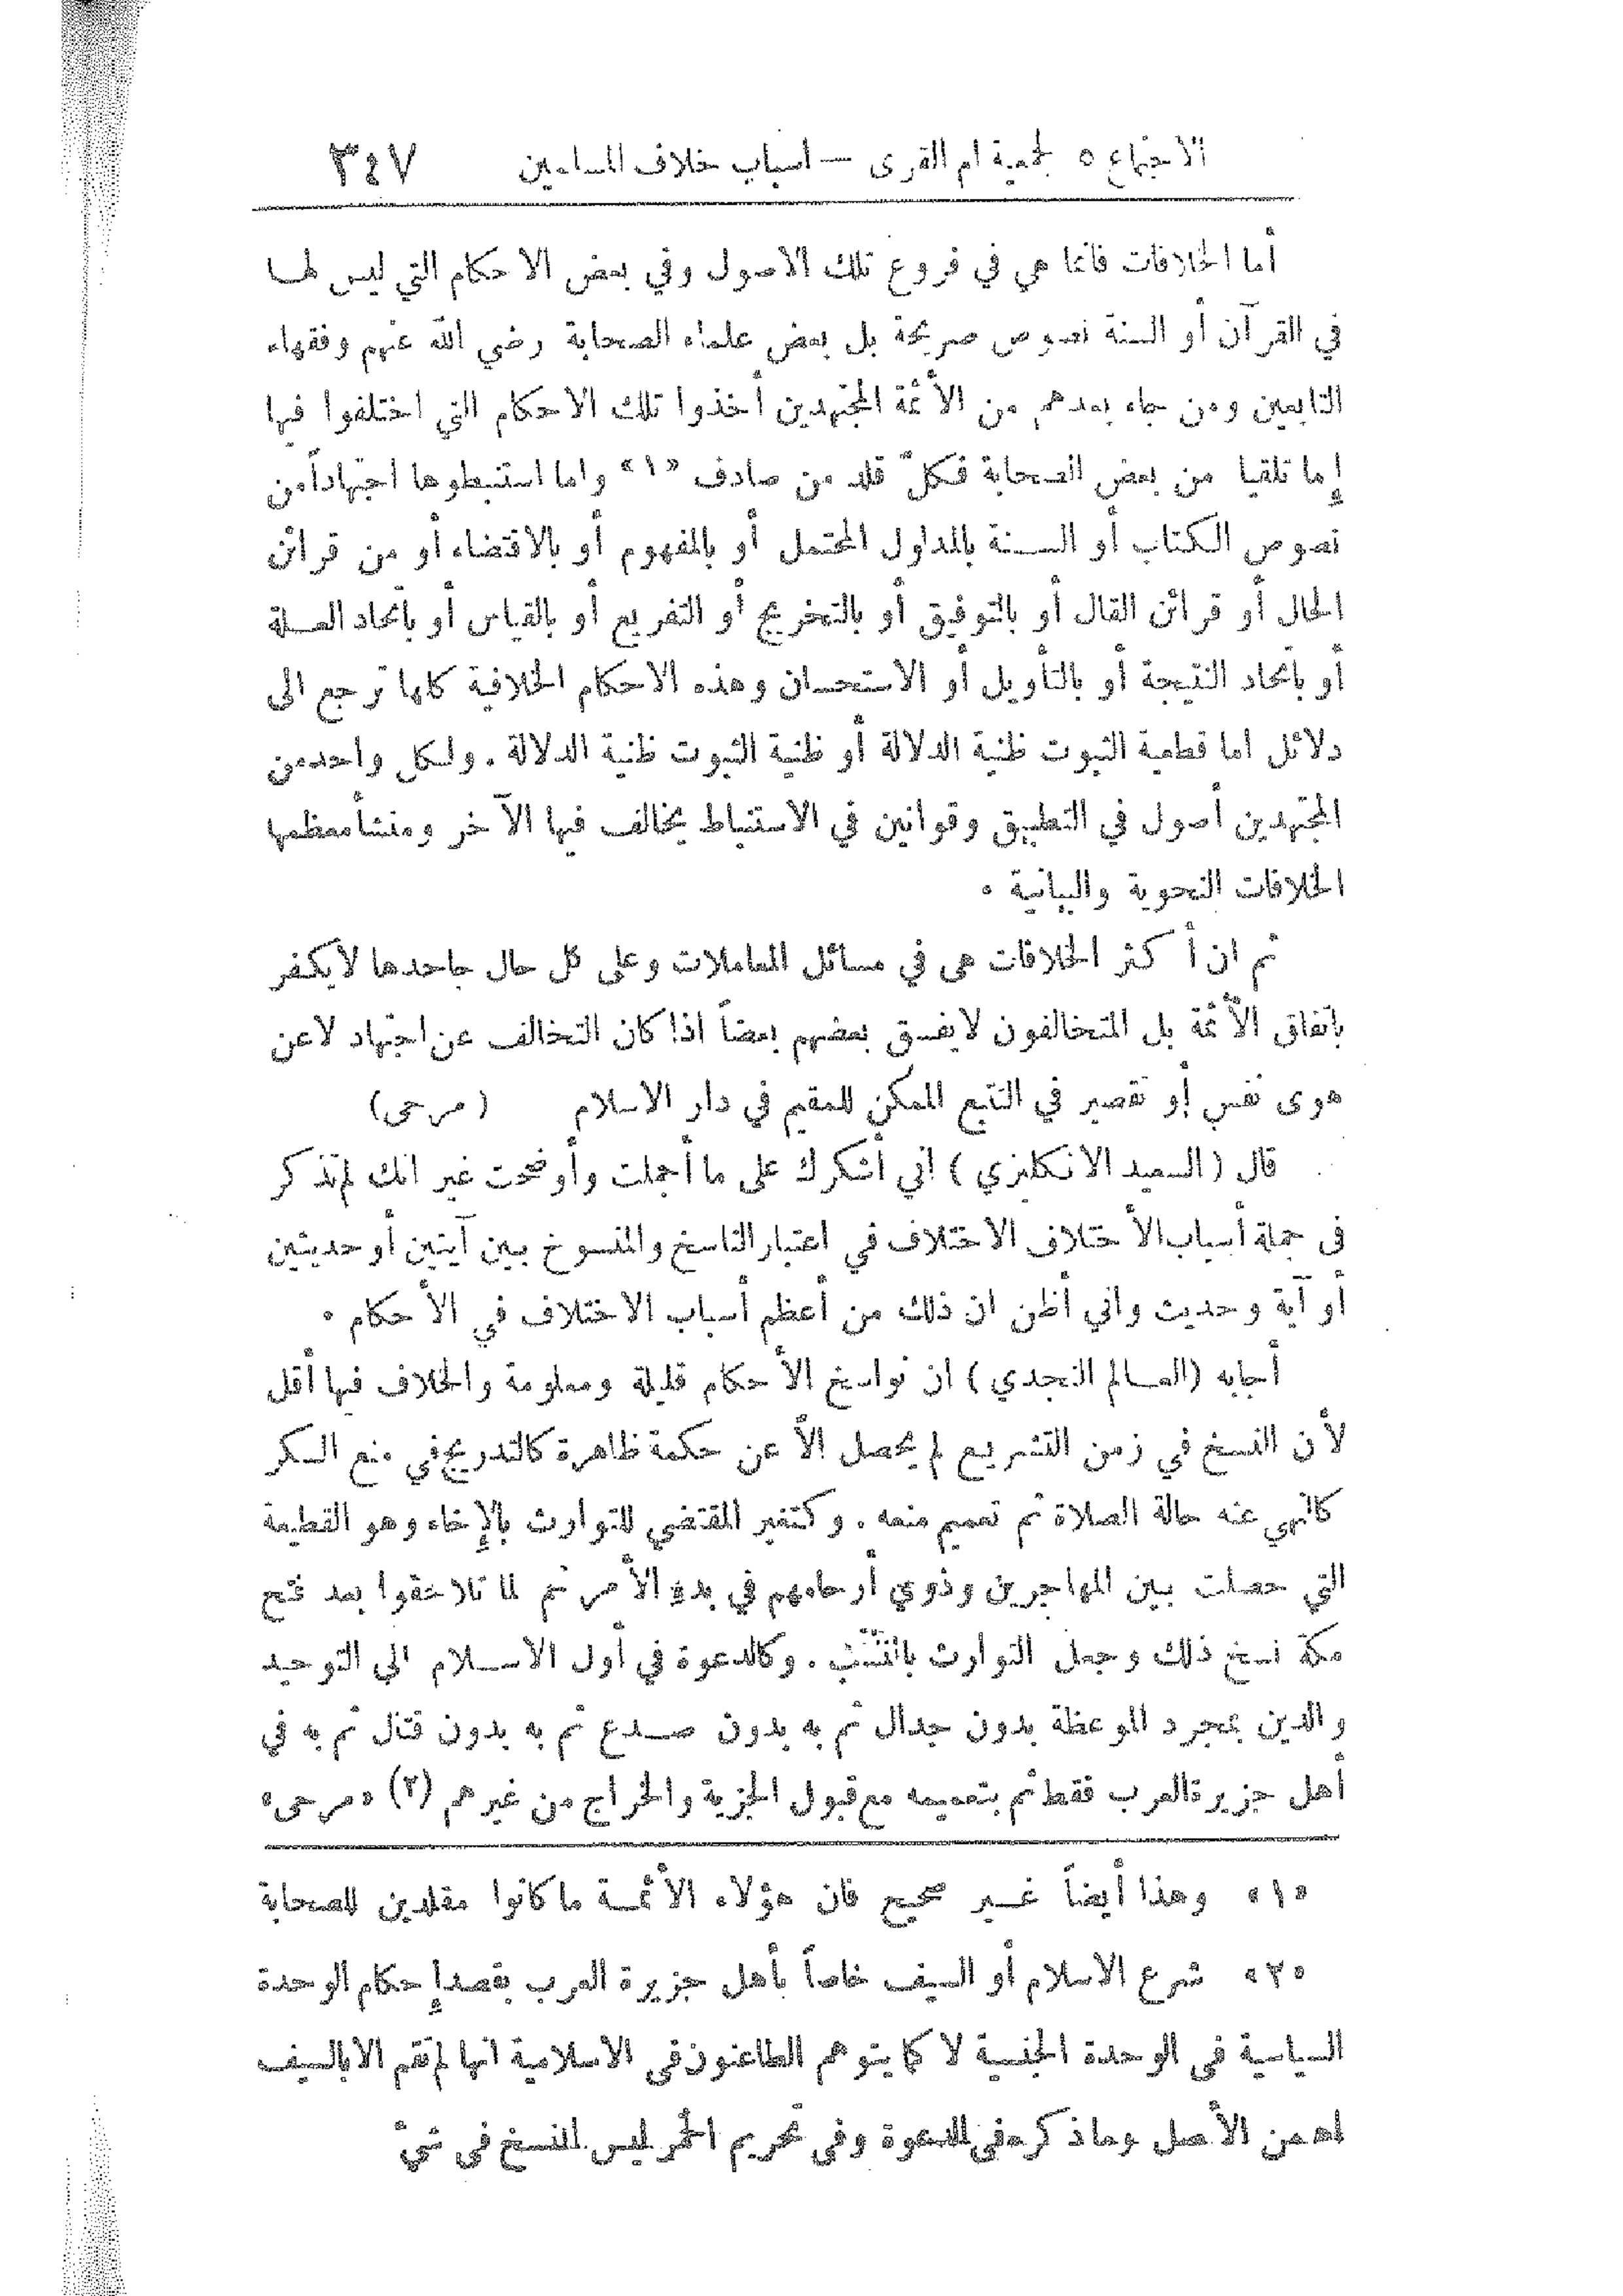 الاجتماع ٥ لجمعية ام القرى — اسباب خلاف المسلمين ٣٤٧
أما الخلافات فانما هي في فروع تلك الاصول وفي بعض الاحكام التي ليس لها
في القرآن أو السنة نصوص صريحة بل بعض علماء الصحابة رضي الله عنهم وفقهاء
التابعين ومن جاء بعدهم من الأئمة المجتهدين أخذوا تلك الاحكام التي اختلفوا فيها
إما تلقيا من بعض الصحابة فكلّ قلد من صادف «١» واما استنبطوها اجتهاداً من
نصوص الكتاب أو السنة بالمدلول المحتمل أو بالمفهوم أو بالاقتضاء أو من قرائن
الحال أو قرائن القال أو بالتوفيق أو بالتخريج أو التفريع أو بالقياس أو باتحاد العلة
أو باتحاد النتيجة أو بالتأويل أو الاستحسان وهذه الاحكام الخلافية كلها ترجع الى
دلائل اما قطعية الثبوت ظنية الدلالة أو ظنية الثبوت ظنية الدلالة . ولكل واحد من
المجتهدين أصول في التطبيق وقوانين في الاستنباط يخالف فيها الآخر ومنشأ معظمها
الخلافات النحوية والبيانية .
ثم ان أكثر الخلافات هى في مسائل المعاملات وعلى كل حال جاحدها لايكفر
باتفاق الأئمة بل المتخالفون لايفسق بعضهم بعضاً اذا كان التخالف عن اجتهاد لاعن
هوى نفس أو تقصير في التتبع الممكن للمقيم في دار الاسلام (مرحى)
قال (السعيد الانكليزي) اني أشكرك على ما أجملت وأوضحت غير انك لم تذكر
فى جملة أسباب الأختلاف الاختلاف في اعتبار الناسخ والمنسوخ بين آيتين أو حديثين
أو آية وحديث واني أظن ان ذلك من أعظم أسباب الاختلاف في الأحكام .
أجابه (العالم النجدي) ان نواسخ الأحكام قليلة ومعلومة والخلاف فيها أقل
لأن النسخ في زمن التشريع لم يحصل الاّ عن حكمة ظاهرة كالتدريج في منع السكر
كالنهي عنه حالة الصلاة ثم تعميم منعه . وكتغير المقتضي للتوارث بالإخاء وهو القطيعة
التي حصلت بين المهاجرين وذوي أرحامهم في بدء الأمر ثم لما تلاحقوا بعد فتح
مكة نسخ ذلك وجعل التوارث بالنسب . وكالدعوة في أول الاسلام الي التوحيد
والدين بمجرد الموعظة بدون جدال ثم به بدون صدع ثم به بدون قتال ثم به في
أهل جزيرة العرب فقط ثم بتعميمه مع قبول الجزية والخراج من غيرهم (٢) «مرحى»
«١» وهذا أيضاً غير صحيح فان هؤلاء الأئمة ما كانوا مقلدين للصحابة
«٢» شرع الاسلام أو السيف خاصاً بأهل جزيرة العرب بقصد إحكام الوحدة
السياسية فى الوحدة الجنسية لا كما يتوهم الطاعنون فى الاسلامية انها لم تقم الا بالسيف
اه من الأصل وما ذكره فى الدعوة وفى تحريم الخمر ليس النسخ فى شيْ